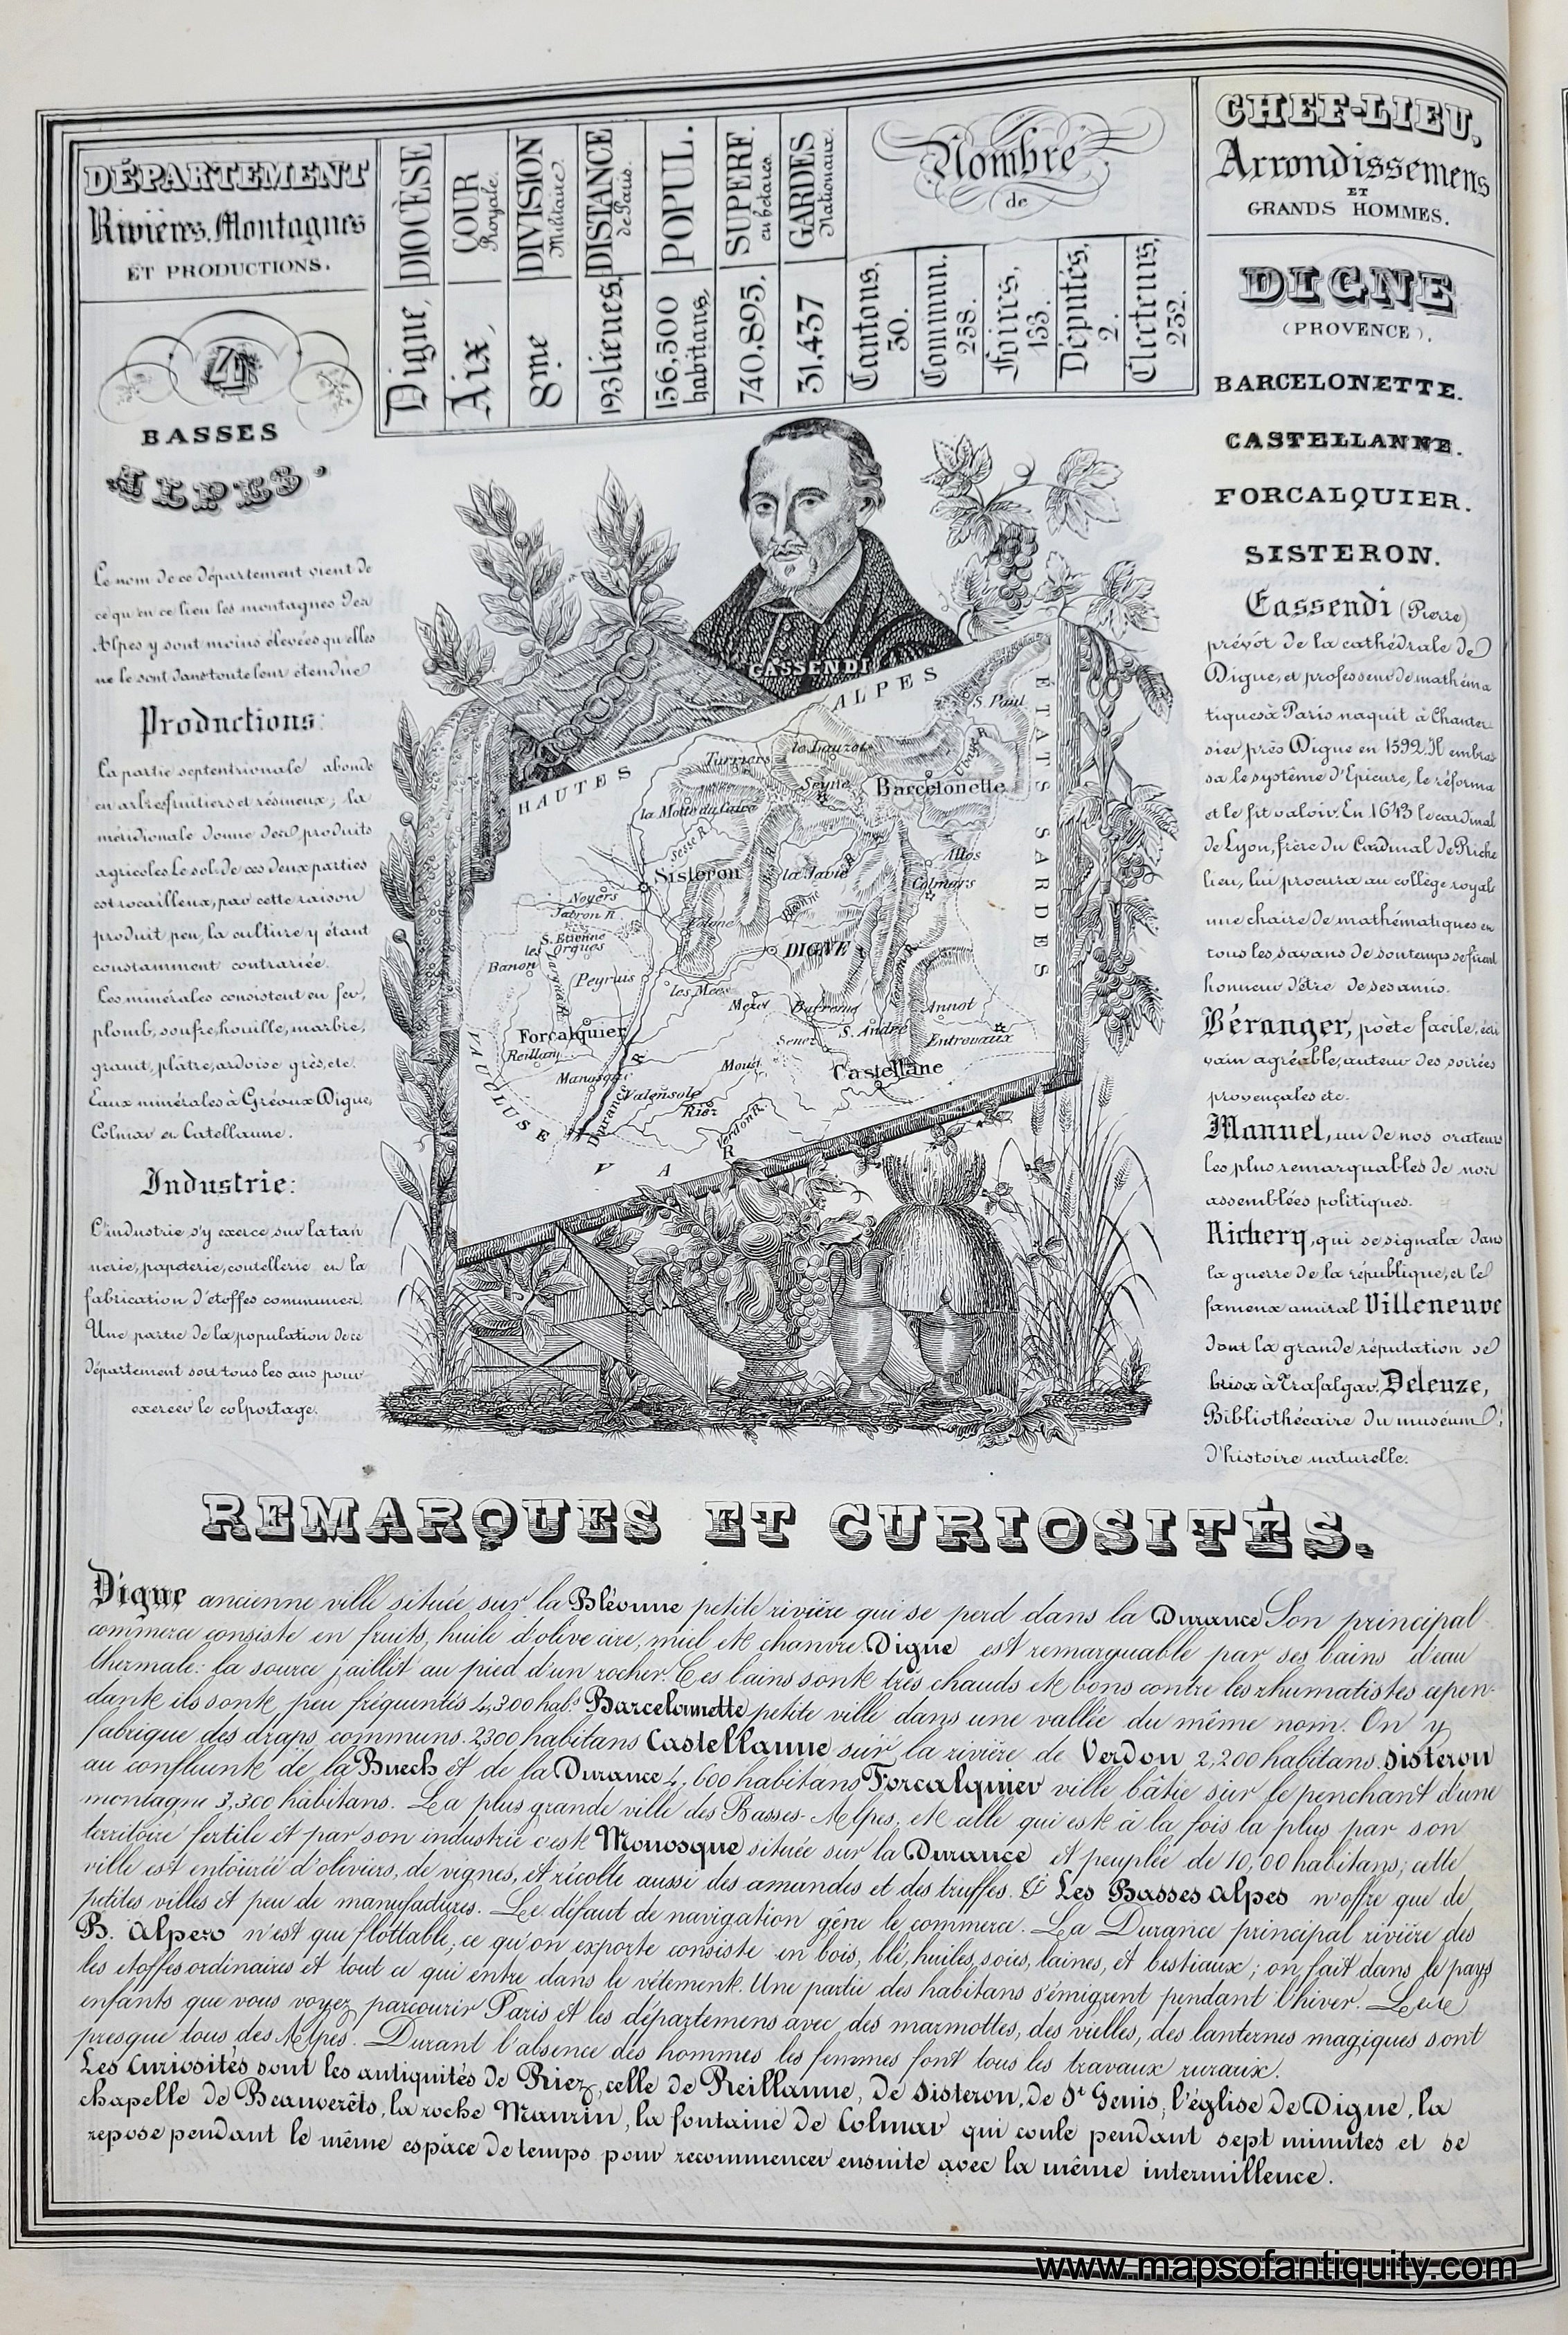 DÉPARTEMENT
Rivières, Montagnes
ET PRODUCTIONS.
DIOCÈSE
Digne,
COUR
Royale.
Aix,
DIVISION
Militaire.
8me
DISTANCE
de Paris.
193 lieues,
POPUL.
156,500
habitans,
SUPERF.
en hétares.
740,895.
GARDES
Nationaux.
31,437
Nombre
de
Cantons,
30.
Commun.
258.
Foires,
133.
Députés,
2.
Electeurs,
232.
CHEF-LIEU,
Arrondissemens
ET
GRANDS HOMMES.
4
BASSES
ALPES.
Le nom de ce département vient de
ce qu'en ce lieu les montagnes des
Alpes y sont moins élevées qu'elles
ne le sont dans toute leur étendue
Productions:
La partie septentrionale abonde
en arbres fruitiers et résineux; la
méridionale donne des produits
agricoles. Le sol de ces deux parties
est rocailleux, par cette raison
produit peu, la culture y étant
constamment contrariée.
Les minérales consistent en fer,
plomb, soufre, houille, marbre,
granit, plâtre, ardoise grès, etc.
Eaux minérales à Gréoux Digne,
Colmar et Catellanne.
Industrie:
L'industrie s'y exerce sur la tan
nerie, papeterie, coutellerie et la
fabrication d'étoffes communes.
Une partie de la population de ce
département sort tous les ans pour
exercer le colportage.
GASSENDI
HAUTES ALPES
ÉTATS SARDES
S. Paul
Ubaye R.
le Lauzet
Turriers
Seyne
Barcelonette
la Motte du Caire
Sasse R.
Sisteron
la Javie
R
Allos
Colmars
Noyers
Jabron R.
Volone
Bléone
S. Etienne
les Orgues
Banon
DIGNE
Peyruis
les Mées
Mezel
Barreme
Annot
Forcalquier
S. André
Senez
Entrevaux
Reillan
Moust
Castellane
Manosque
Valensole
Riez
Durance
R
Verdon R.
VAUCLUSE
VAR
DIGNE
(PROVENCE).
BARCELONETTE.
CASTELLANNE.
FORCALQUIER.
SISTERON.
Gassendi (Pierre)
prévôt de la cathédrale de
Digne, et professeur de mathéma
tiques à Paris naquit à Chanter-
sier près Digne en 1592. Il embras
sa le système d'Epicure, le réforma
et le fit valoir. En 1643 le cardinal
de Lyon, frère du Cardinal de Riche
lieu, lui procura au collège royal
une chaire de mathématiques en
tous les savans de son temps se firent
honneur d'être de ses amis.
Béranger, poète facile, écri
vain agréable, auteur des soirées
provençales etc.
Manuel, un de nos orateurs
les plus remarquables de nos
assemblées politiques.
Richery, qui se signala dans
la guerre de la république, et le
fameux amiral Villeneuve
dont la grande réputation se
brisa à Trafalgar. Deleuze,
Bibliothécaire du muséum
d'histoire naturelle.
REMARQUES ET CURIOSITÉS.
Digne ancienne ville située sur la Bléonne petite rivière qui se perd dans la Durance Son principal
commerce consiste en fruits, huile d'olive cire, miel et chanvre. Digne est remarquable par ses bains d'eau
thermale: la source jaillit au pied d'un rocher. Ces bains sont très chauds et bons contre les rhumatistes cepen-
dant ils sont peu fréquentés 4,300 habs. Barcelonnette petite ville dans une vallée du même nom. On y
fabrique des draps communs. 2300 habitans Castellanne sur la rivière de Verdon 2,200 habitans. Sisteron
au confluent de la Buech et de la Durance 4,600 habitans Forcalquier ville bâtie sur le penchant d'une
montagne 3,300 habitans. La plus grande ville des Basses-Alpes, et celle qui est à la fois la plus par son
territoire fertile et par son industrie c'est Monosque située sur la Durance et peuplée de 10,00 habitans; cette
ville est entourée d'oliviers, de vignes, et récolte aussi des amandes et des truffes. Les Basses Alpes n'offre que de
petites villes et peu de manufactures. Le défaut de navigation gêne le commerce. La Durance principal rivière des
B. Alpes n'est que flottable; ce qu'on exporte consiste en bois, blé, huiles, soies, laines, et bestiaux; on fait dans le pays
les étoffes ordinaires et tout ce qui entre dans le vêtement. Une partie des habitans s'émigrent pendant l'hiver. Les
enfants que vous voyez parcourir Paris et les départemens avec des marmottes, des vielles, des lanternes magiques sont
presque tous des Alpes. Durant l'absence des hommes les femmes font tous les travaux ruraux.
Les Curiosités sont les antiquités de Riez, celle de Reillanne, de Sisteron, de St Genis, l'église de Digne, la
chapelle de Beauverêts, la roche Maurin, la fontaine de Colmar qui coule pendant sept minutes et se
repose pendant le même espâce de temps pour recommencer ensuite avec la même intermillence.
www.mapsofantiquity.com